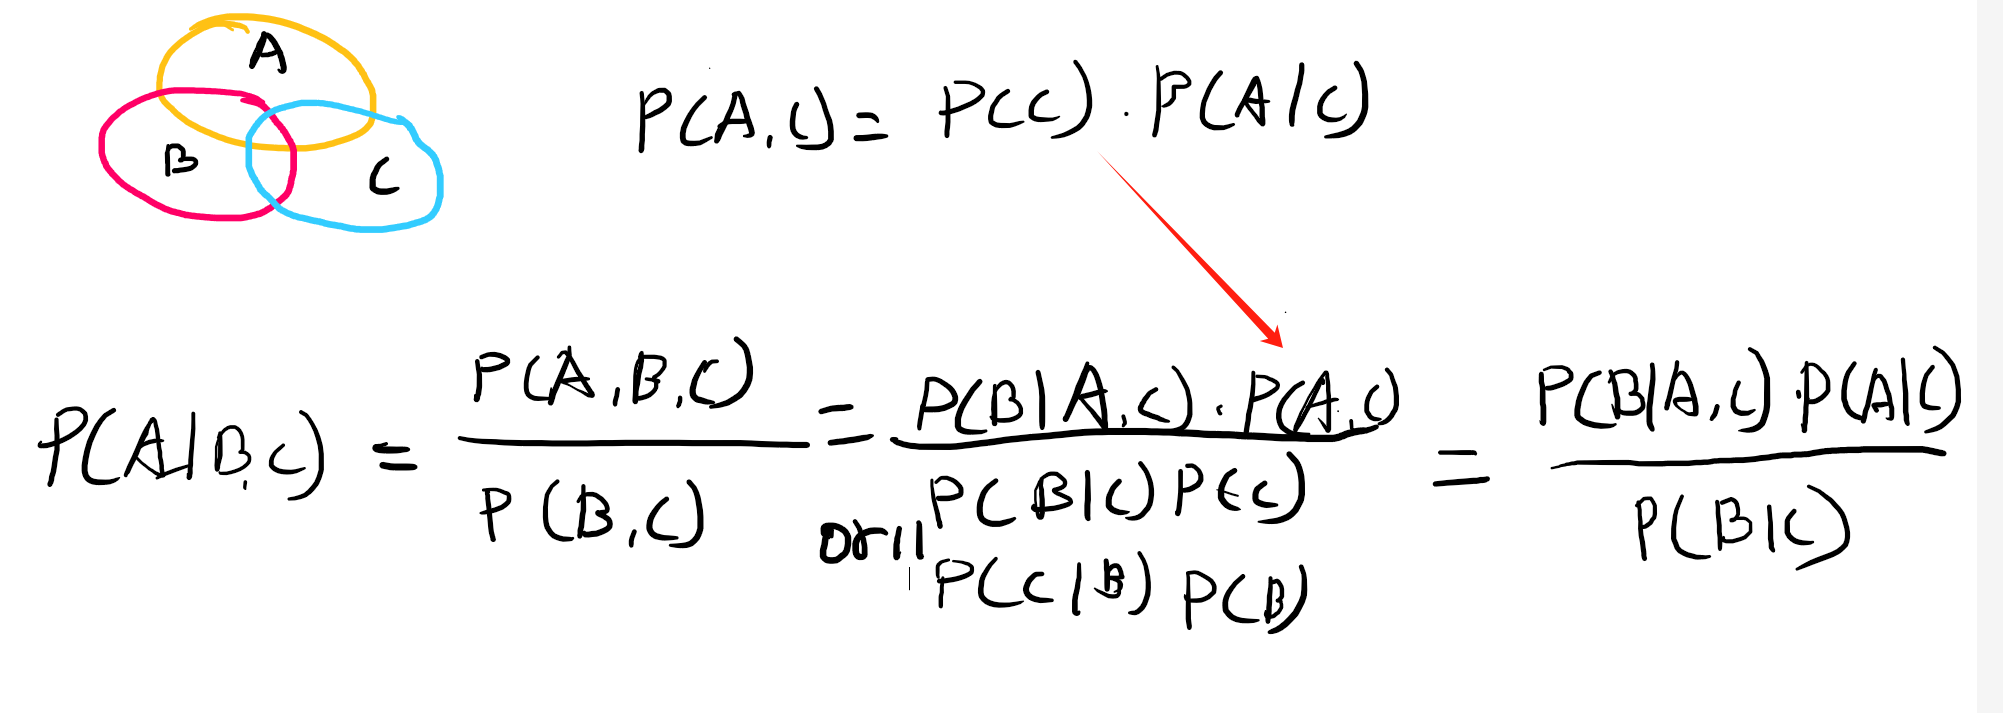 A
B
C
P(A,C) = P(C) · P(A|C)
P(A|B,C) = P(A,B,C) / P(B,C) = P(B|A,C) · P(A,C) / P(B|C) P(C) = P(B|A,C) · P(A|C) / P(B|C)
P(C|B) P(B)